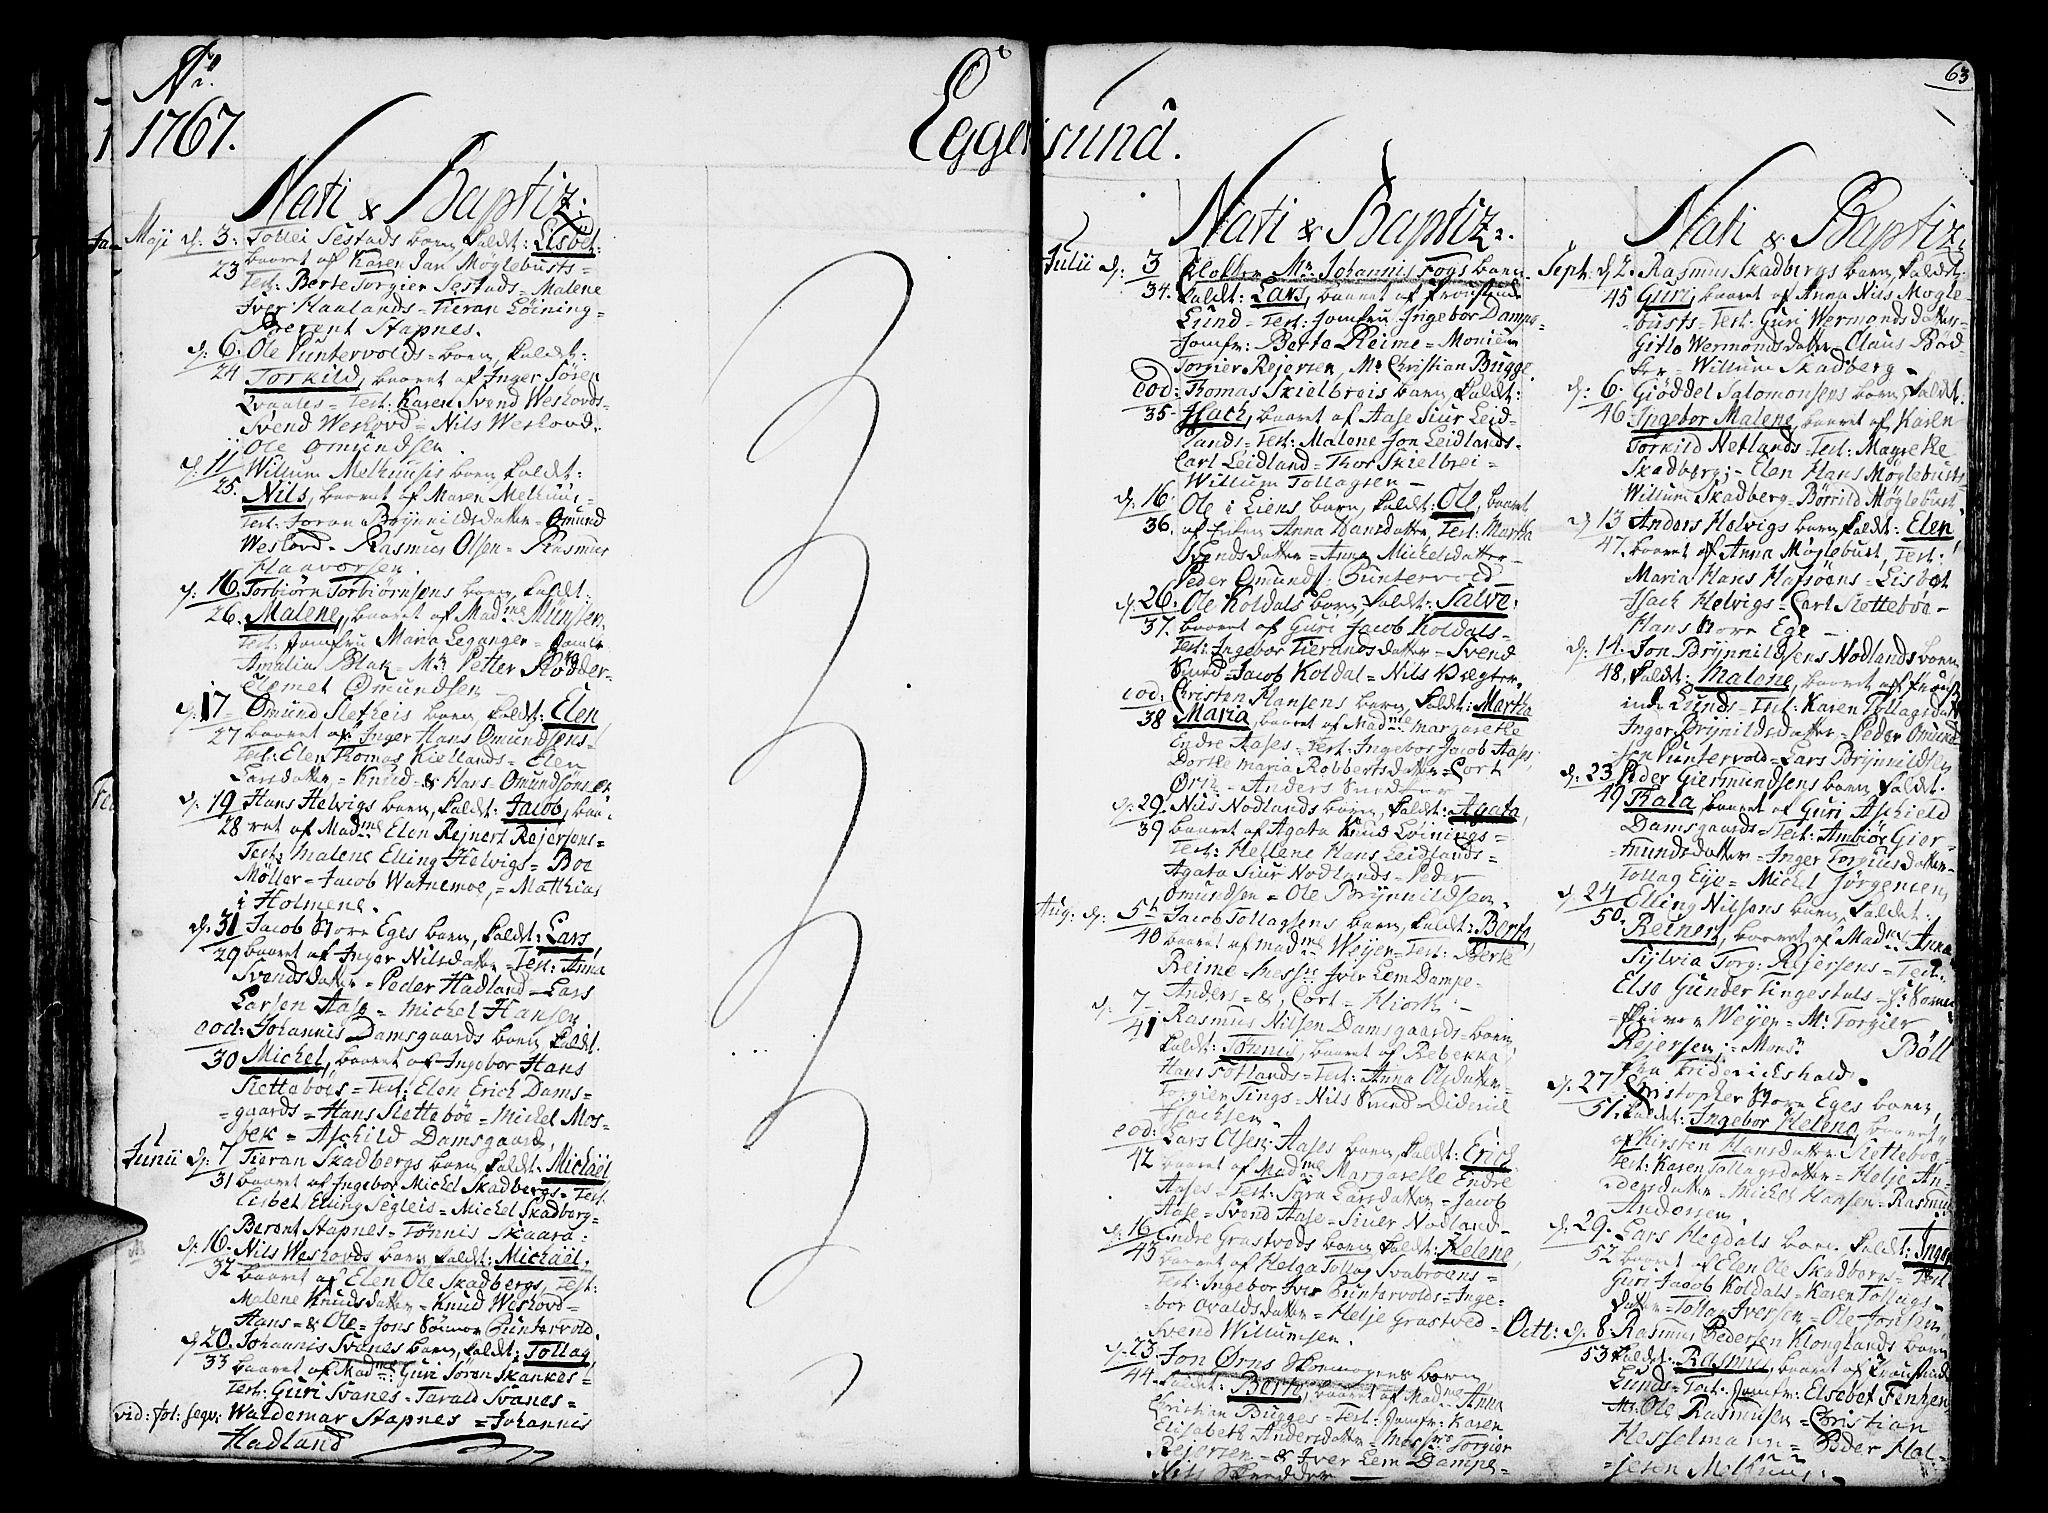 No.
1767.
Eggersund.
63
Nati & Baptiz:
Maji d: 3: Tollei Sestads barn, kaldt: Lisbet:
23 baaret af Karen Jan Möglebusts=
Test: Berte Torgier Sestads= Malene
Iver Haalands= Tieran Löining=
Berent Stapnes.
d: 6. Ole Puntervolds= barn, kaldt:
24 Torkild, baaret af Inger Sören
Qvaales= Test: Karen Svend Weshovds=
Svend Weshovd= Nils Weshovd.
Ole Omundsen.
d: 11 Willum Melhuusis barn kaldt:
25. Nils, baaret af Maren Melhuus=
Test: Joran Brynnildsdatter= Omund
Weshovd= Rasmus Olsen= Rasmus
Haavorsen.
d: 16. Torbiörn Torbiörnsens barn, kaldt:
26. Malene, baaret af Madme Münster,
Test: Jomfru Maria Leganger= Jomfr
Amalia Blak= Mr Petter
Omundsen
d: 17 Omund Sletheis barn, kaldt: Elen
27 baaret af Inger Hans Omundsens=
Test: Elen Thomas Kiellands= Elen
Larsdatter= Knud= & Hans= Omundsøns
d: 19 Hans Helvigs barn, kaldt: Jacob, baa=
28 ret af Madme Elen Rejnert Rejersens=
Test: Malene Elling Helvigs= Boe
Möller= Jacob Watnemoe,= Matthias
i Holmene.
d: 31 Jacob Store Eges barn, kaldt: Lars,
29 baaret af Inger Nilsdatter= Test: Anna
Svendsdatter= Peder Hadland= Lars
Larsen Aase= Michel Hansen
eod: Johannis Damsgaards barn kaldt.
30 Michel, baaret af Ingebor Hans
Slettebøes= Test: Elen Erich Dams=
=gaards= Hans Slettebøe= Michel Mos=
bek= Aschild Damsgaard,
Junii d: 7 Tieran Skadbergs barn, kaldt: Michäel
31 baaret af Ingebor Michel Skadbergs= Test:
Lisbet Elling Segleis= Michel Skadberg=
Berent Stapnes= Tönnis Skaara:
d: 16. Nils Weshovds barn, kaldt: Michäel.
32 baaret af Elen Ole Skadbergs, Test:
Malene Knudsdatter= Knud Weshovd=
Hans= & Ole= Jons Puntervold.
d: 20. Johannis Svanes barn, kaldt: Tollag,
33 baaret af Madme: Guri Sören Skankes=
Test: Guri Svanes= Tarald Svanes=
vid: fol: seqv: Waldemar Stapnes= Johannis
Hadland
Nati & Baptiz:.
Julii d: 3 Klokker Mr. Johannis Fogs barn
34. kaldt: Lars, baaret af Provstinde
Lund= Test: Jomfru Ingebor Dampe=
Jomfr: Berte Reime= Monsieur
Torgier Rejersen, Mr Christian Bugge.
eod: Thomas Skielbreis barn, kaldt:
35. Isach, baaret af Aase Siur Leid=
lands= Test: Malene Jon Leidlands=
Carl Leidland= Thor Skielbrei=
Willum Tollagsen
d: 16. Ole i Liens barn, kaldt: Ole, baaret
36. af Anna Hansdatter, Test: Martha
Svendsdatter= Anna Michelsdatter
Peder Omunds: Puntervold
d: 26. Ole Koldals barn, kaldt: Salve:
37. baaret af Guri Jacob Koldals=
Test: Ingebor Tierandsdatter= Svend
Jacob Koldal= Nils
eod: Christen Hansens barn, kaldt: Martha
38 Maria, baaret af Madme Margarethe
Endre Aases= Test: Ingebor Jacob Aases
Dorthe Maria Robbertsdatter= Cort
Anders
d: 29. Nils Nodlands barn, kaldt: Agata,
39 baaret af Agata Knud Löinings=
Test: Hellene Hans Leidlands=
Agata Siur Nodlands= Peder
Omundsen= Ole Brynnildsen.
Aug: d: 5t Jacob Tollagsens barn, kaldt: Berte,
40 baaret af madme Weyer= Test: Berte
Reime= Messrs Iver Lem Dampe=
Anders= &, Cort= Hiorth.
d: 7 Rasmus Nilsen Damsgaards= barn
41 kaldt: Tönnis, baaret af Rebekka
Hans Fotlands= Test: Anna Olsdatter=
Torgier Tings= Nils Diderik
Isachsen
eod: Lars Olsen Aases barn, kaldt: Erich
42 baaret af Madme Margarethe Endre
Aases= Test: Sara Larsdatter= Jacob
Aase= Svend Aase= Siuer Nodland
d: 16 Endre Grastveds barn, kaldt: Helene,
43 baaret af Helga Tollag Svabroens=
Test: Ingebor Iver Puntervolds= Inge=
bor Ovaldsdatter= Helje Grastved=
Svend Willumsen.
d: 23 Jon Ørns Skomagers barn
44. kaldt: Berte, baaret af Madme Anna
Christian Bugges= Test: Jomfr: Karen
Elisabeth Andersdatter= Messrs Torgier
Rejersen= & Iver Lem Dampe=
Nils Skredder
Nati & Baptiz:
Sept: d 2. Rasmus Skadbergs barn, kaldt:
45 Guri, baaret af Anna Nils Mogle=
=busts= Test: Guri Wermondsdatter=
Gitlo Wermondsdatter= Claus Bød=
ker= Willum Skadberg
d: 6. Giöddel Salomonsens barn, kaldt.
46 Ingebor Malene, baaret af Karen
Torkild Netlands= Test: Magrethe
Skadberg;= Elen Hans Möglebusts=
Willum Skadberg= Börrild Möglebust
d 13 Anders Helvigs barn, kaldt: Elen,
47. baaret af Anna Möglebust, Test:
Maria Hans Hafsöens= Lisbet
Isach Helvigs= Carl Slettebøe=
Hans Store Ege
d: 14. Jon Brynnildsens Nodlands barn
48, kaldt: Malene, baaret af Provst=
inde Lunds= Test: Karen Tollagsdatter
Inger Brynildsdatter= Peder Omund=
sen Puntervold= Lars Brynnildsen
d: 23 Peder Giermundsens barn, kaldt.
49 Kala, baaret af Guri Aschield
Damsgaards= Test: Ambiör Gier=
=mundsdatter= Inger Torgiersdatter=
Tollag Eije= Michel Jörgensen,
d 24 Elling Nilsens barn, kaldt:
50. Reinert, baaret af Madme Anna
Sylvia Torg: Rejersens= Test:
Else Gunder Tingestuls= Hr
=skriver Weyer= Mr Torgier
Rejersen;= Monsr Böll
fra Friderichshald.
d: 27 Christopher Store Eges barn,
51. kaldt: Ingebor Helene, baaret
af Kirsten Hansdatter Slettebøe=
Test: Karen Tollagsdatter= Helje An=
=dersdatter= Michel Hansen= Rasmus
Andersen,
d: 29. Lars Hegdals barn kaldt: Inger
52 baaret af Elen Ole Skadbergs= Test
Guri Jacob Koldals= Karen Tollags=
datter= Tollag Iversen= Ole Jonsen,
Octt: d: 8 Rasmus Pedersen Klonglands barn
53 kaldt: Rasmus, baaret af Provstinde
Lunds= Test: Jomfr: Elsebet Fenger
Mr Ole Rasmusen= Christian
Hesselmann= Peder Hal=
=sesen Melhuus.